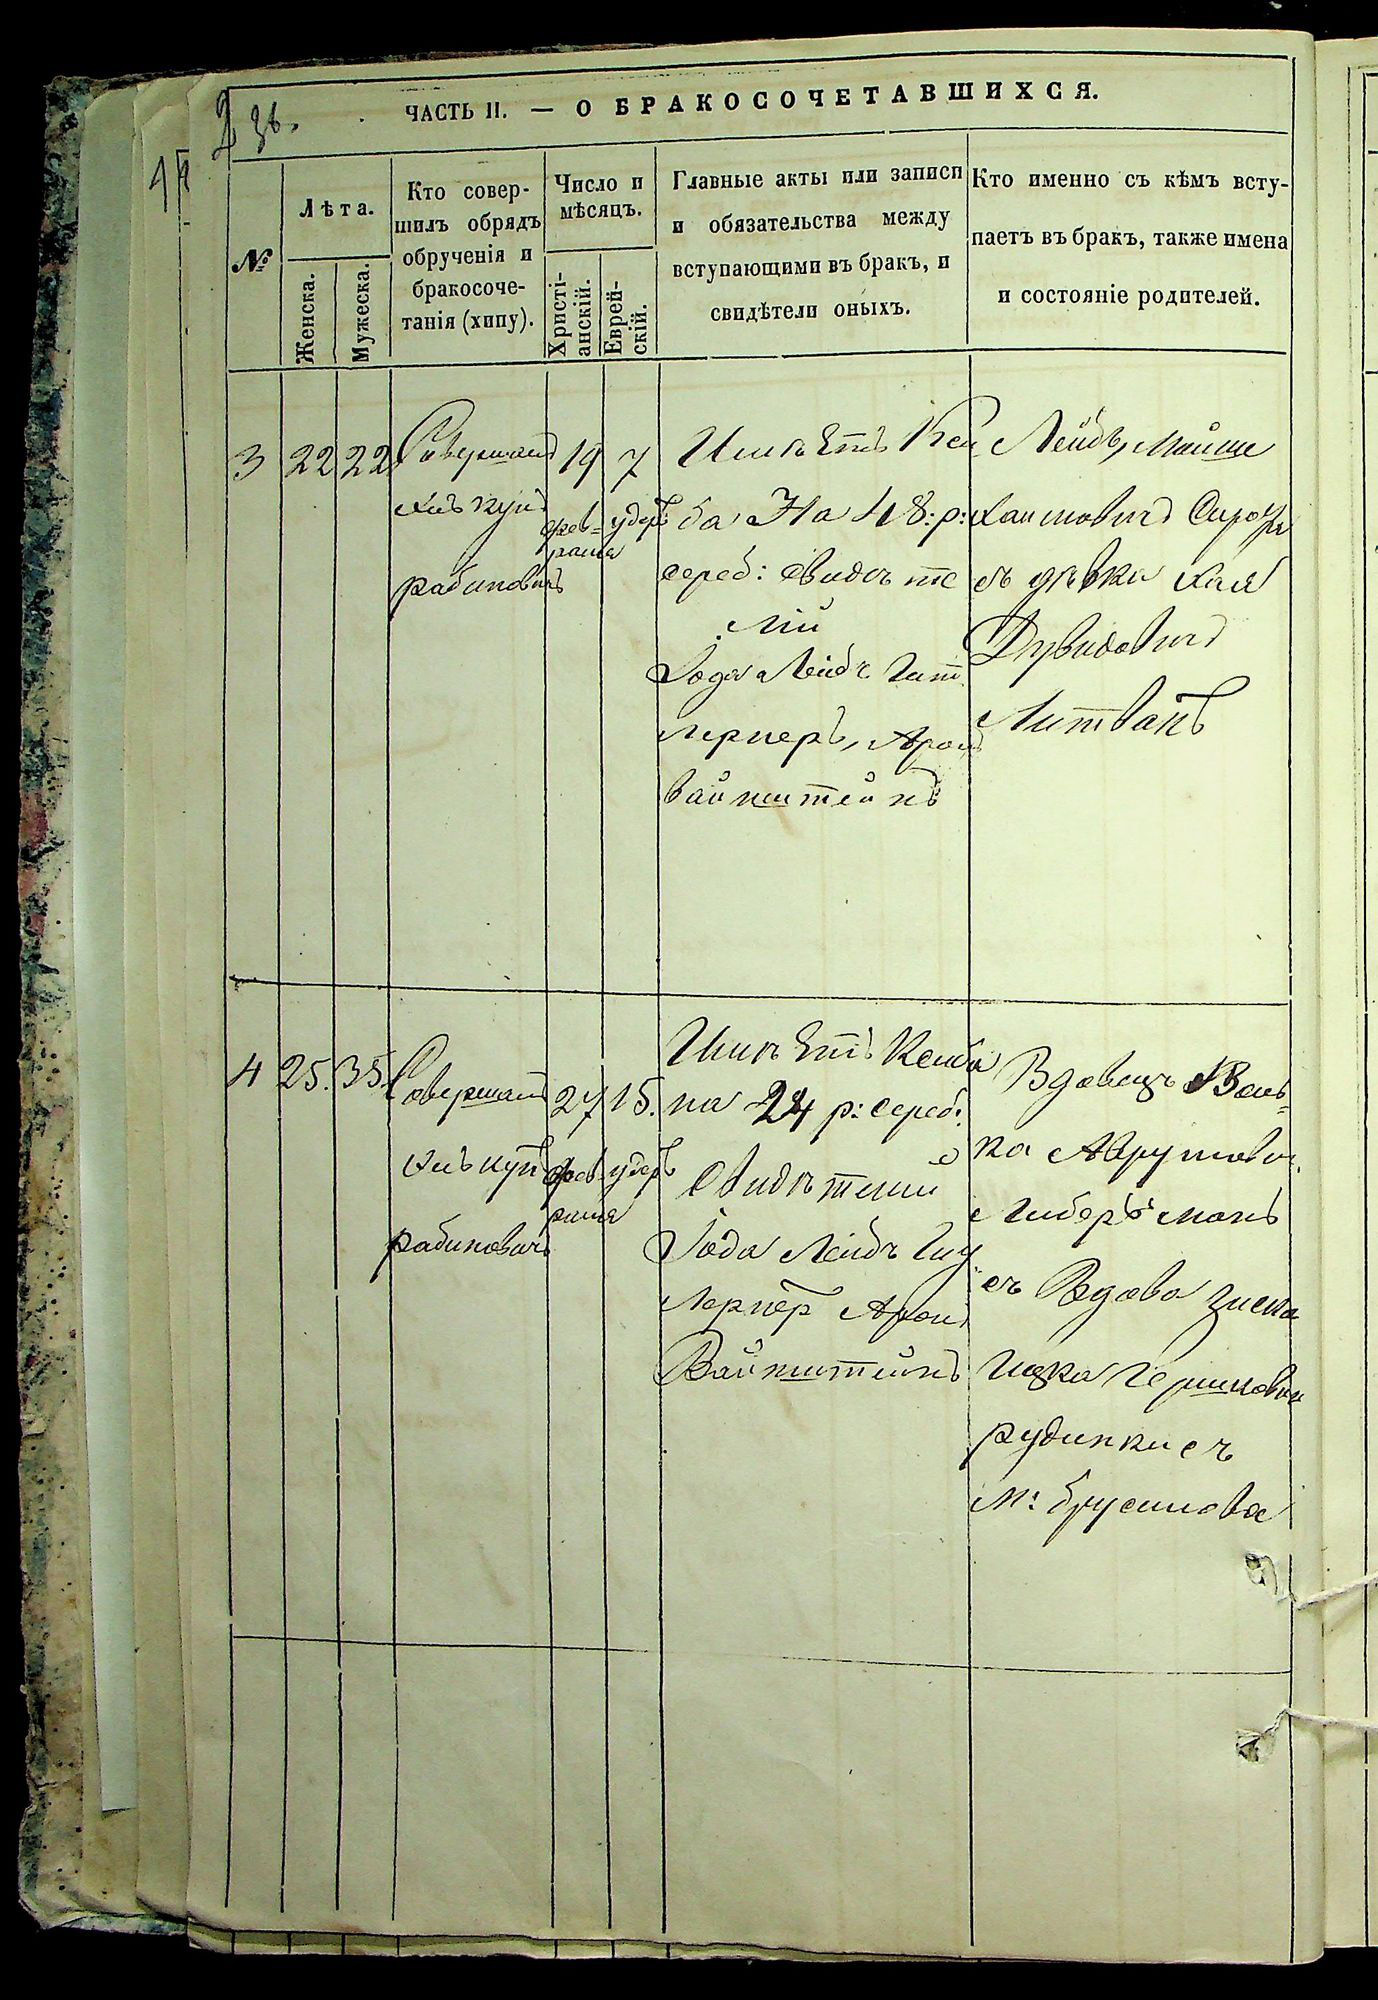 2 зв.
ЧАСТЬ II. — О БРАКОСОЧЕТАВШИХСЯ.
№
Лѣта.
Женска.
Мужеска.
Кто совер-
шилъ обрядъ
обрученія и
бракосоче-
танія (хипу).
Число и
мѣсяцъ.
Христі-
анскій.
Еврей-
скій.
Главные акты или записи
и обязательства между
вступающими въ бракъ, и
свидѣтели оныхъ.
Кто именно съ кѣмъ всту-
паетъ въ бракъ, также имена
и состояніе родителей.
3
22
22
Совершалъ
рабиновичъ
19
фев-
раля
7
удеръ
Имѣетъ Кеи
ба На 48: р:
сереб: Свидѣте
лій
Іода Лейбъ Гит
лернеръ, Аронъ
Вайнштейнъ
Лейбъ, Мойше
Хаимовичъ Сирота
съ дѣвка Хая
Дувидовичъ
Литванъ
4
25.
35.
Совершалъ
рабиновичъ
27
фев-
раля
15.
удеръ
Имѣетъ Кеиба
на 24 р: сереб:
Свидѣтелий
Іода Лейбъ
Лернеръ Аронъ
Вайнштейнъ
Вдовецъ Воль-
ка Аврумови.
Либерманъ
съ Вдова Зиска
Гершкови
рудинки съ
м: брусилова